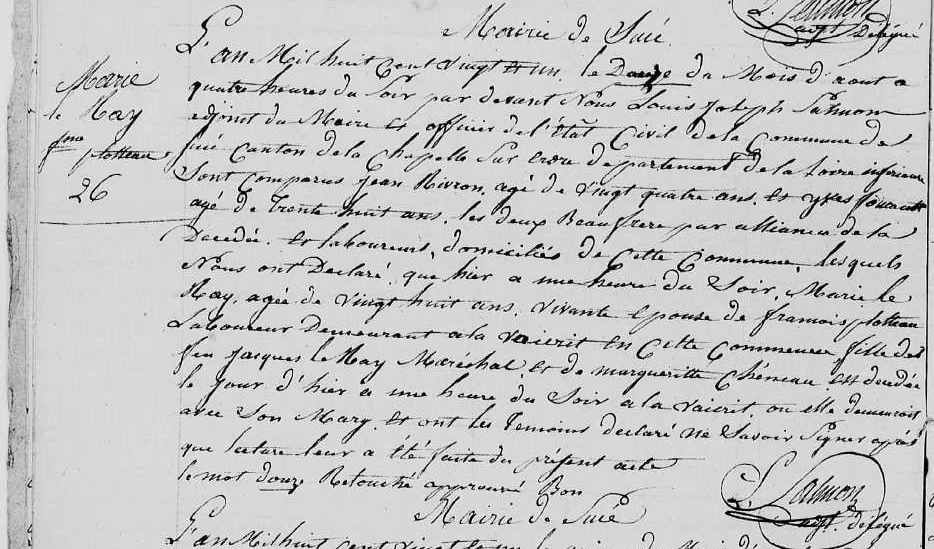 L. Salmon
adjt Délégué
Mairie de Sucé.
L'an Mil huit Cent vingt et un, le Douze du Mois d'aout a
quatre heures du Soir par devant Nous Louis Joseph Salmon
adjoint du Maire et officier de l'état Civil de la Commune de
Sucé Canton de la Chapelle Sur Erdre département de la Loire inferieure
Sont Comparus Jean Rivron, agé de vingt quatre ans, et yves fouault
agé de Trente huit ans, les deux Beaufrere par alliance de la
Decedée. et laboureurs, domiciliés de Cette Commune, lesquels
Nous ont Declaré, que hier a une heure du Soir, Marie le
May, agée de vingt huit ans, vivante Epouse de francois plotteau
Laboureur Demeurant a la vaierit en Cette Commune fille des
feu Jacques le May Maréchal et de margueritte Chéneau est decedée
le jour d'hier a une heure du Soir a la vaierit, ou elle demeuroit
avec Son Mary, et ont les Temoins declaré ne Savoir Signer après
que lecture leur a été faite du présent acte
le mot douze Retouché approuvé Bon
L. Salmon
adjt. délégué
Marie
le May
fme plotteau
26
Mairie de Sucé
L'an Mil huit Cent vingt et un